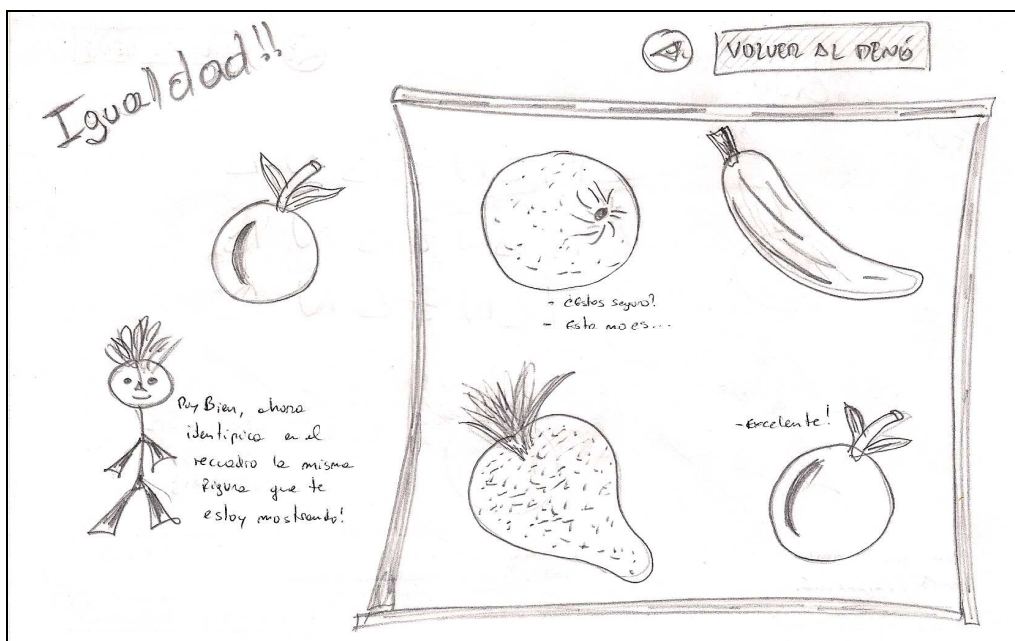 Igualdad!!
VOLVER AL MENÚ
- ¿Estás seguro?
- Esta no es...
Muy Bien, ahora
identifica en el
recuadro la misma
figura que te
estoy mostrando!
- Excelente!